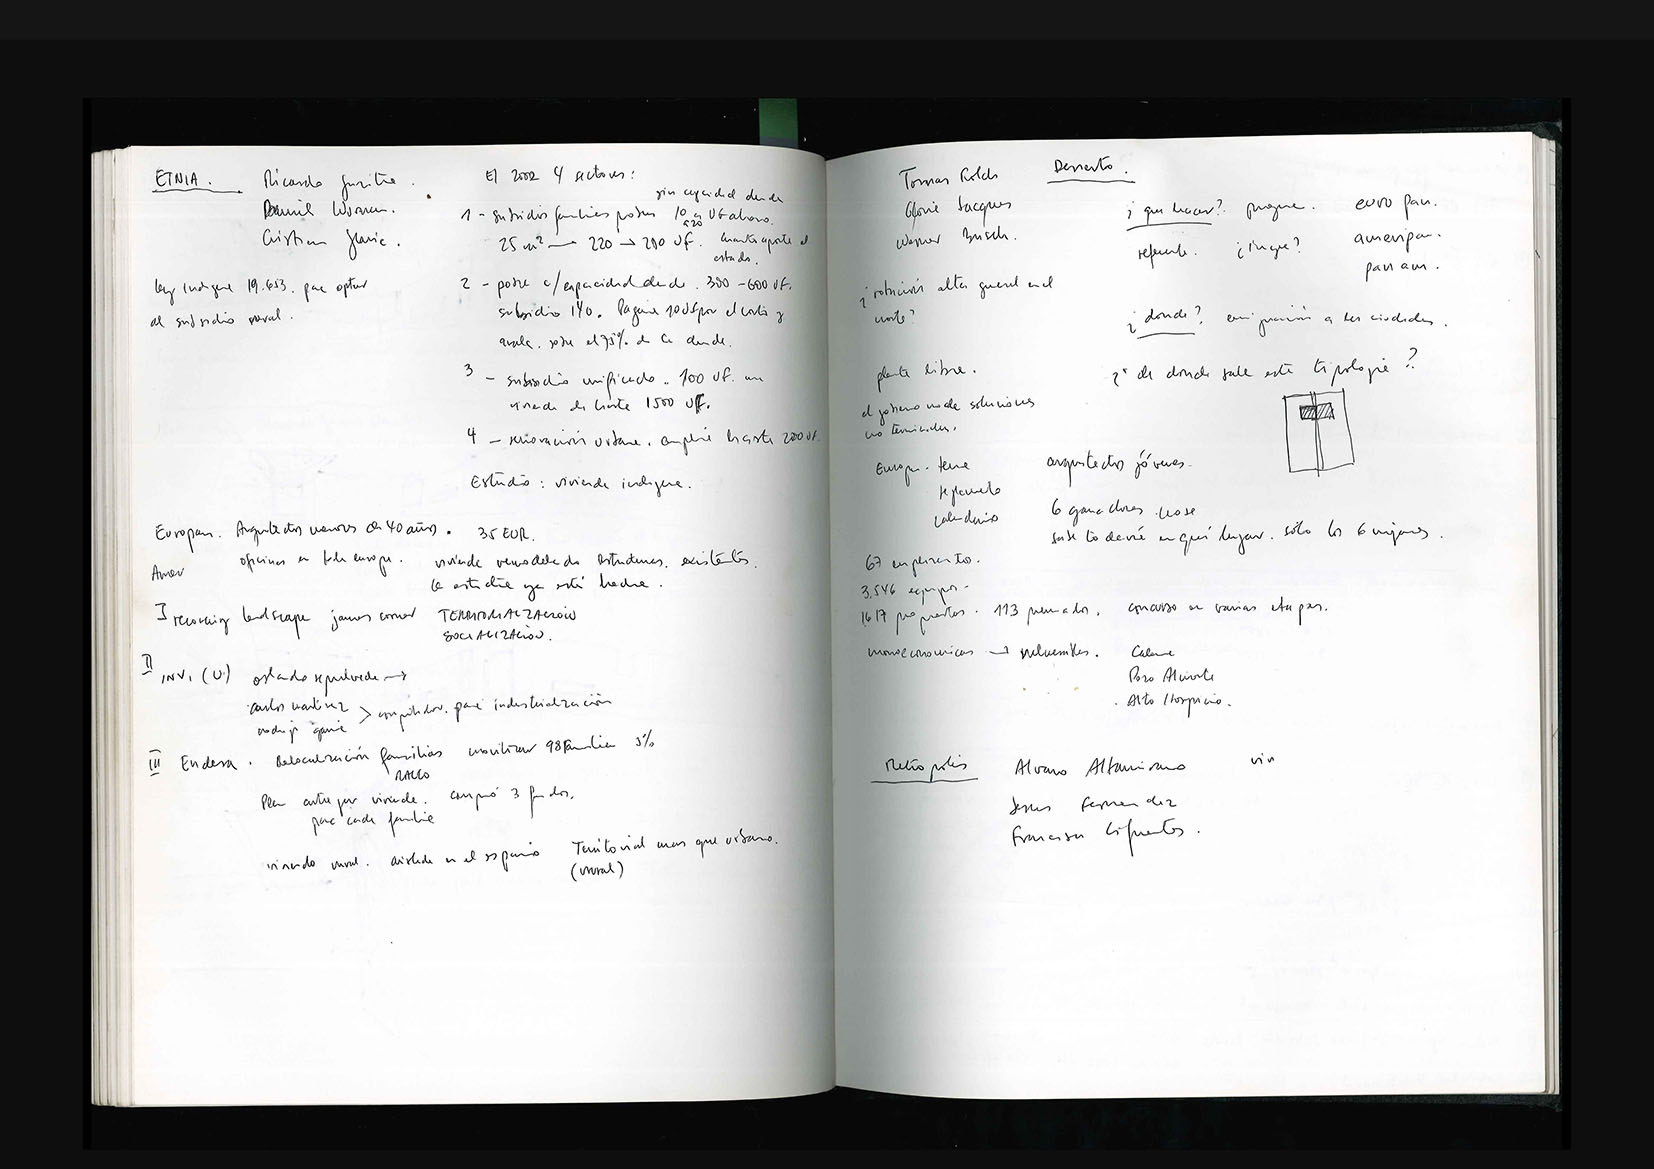 ETNIA.
Ricardo
Daniel
Cristian
Ley indígena 19.653. para optar
al subsidio rural.
El 2002 4 sectores:
sin capacidad deuda
1 - subsidios familias pobres 10 a UF ahorro.
a 20
25 m² → 220 → 280 UF. cuanto aporta el
estado.
2 - pobre c/capacidad deuda. 300 - 600 UF.
subsidio 140. Pagan 10 UF por el costo y
avala. sobre el 75% de la deuda.
3 - subsidio unificado. 100 UF. en
vivienda de hasta 1500 UF.
4 - renovación urbana. amplié hasta 2000 UF.
Estudio: vivienda indígena.
Europan. Arquitectos menores de 40 años. 35 EUR.
oficinas en toda europa. vivienda remodelada estructuras. existentes.
Amer
la estudia ya está hecha.
I recovering landscape james corner TERRITORIALIZACIÓN
SOCIALIZACIÓN.
II INVI (U) orlando sepulveda →
carlos martinez
> compilador. para industrialización
III Endesa. Relocalización familias movilizar 98 familia 5%
RALCO
Plan entregar vivienda. compró 3 fundos.
para cada familia
vivienda rural. aislada en el espacio Territorial mas que urbano.
(rural)
Tomas Desierto.
Jacques
Werner Busch.
¿que hacer? euro pan.
referente. ameripan.
pan am.
¿rotación alta general en el
norte?
¿donde? emigración a las ciudades.
planta libre. ¿de donde sale esta tipología?
el gobierno no da soluciones
no terminadas.
Europa. tema arquitectos jóvenes.
reglamento
calendario 6 ganadores no se
sabe todavía en qué lugar. sólo los 6 mejores.
67 emplazamientos.
3.546 equipos.
1617 propuestas. 113 premiados. concurso en varias etapas.
monoeconomicas → Calama
Pozo Almonte
Alto Hospicio.
Metropolis Alvaro Altamirano viv
Jesus Fernandez
Francisca Cifuentes.